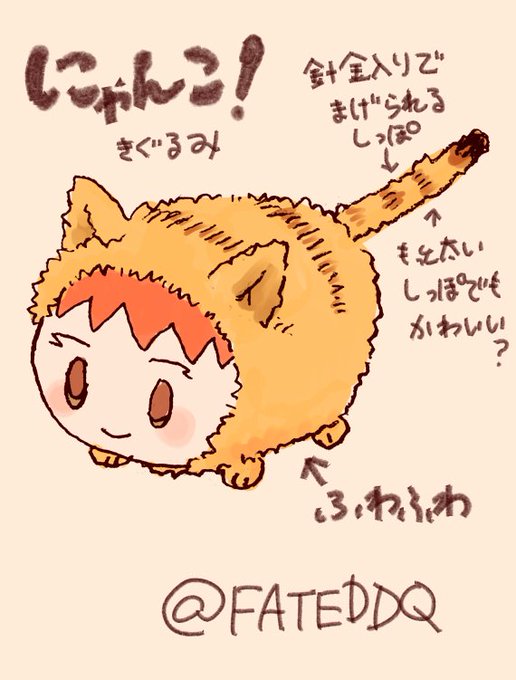 にゃんこ!
きぐるみ
針金入りで
まげられる
しっぽ
もっと太い
しっぽでも
かわいい?
ふわふわ
@FATEDDQ